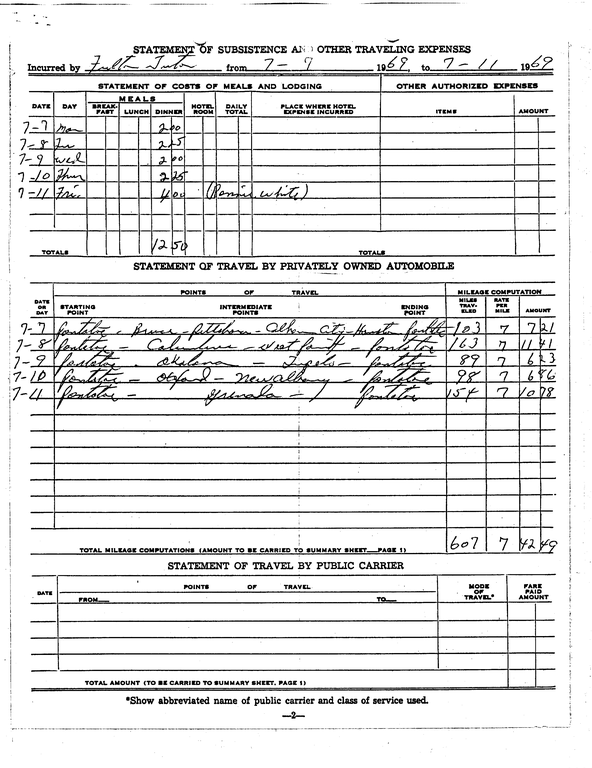 STATEMENT OF SUBSISTENCE AND OTHER TRAVELING EXPENSES
Incurred by Fulton Tutor from 7-7 1969, to 7-11 1969
STATEMENT OF COSTS OF MEALS AND LODGING OTHER AUTHORIZED EXPENSES
MEALS
DATE DAY BREAK-FAST LUNCH DINNER HOTEL ROOM DAILY TOTAL PLACE WHERE HOTEL EXPENSE INCURRED ITEMS AMOUNT
7-7 Mon 2 00
7-8 Tu 2 25
7-9 Wed 2 00
7-10 Thur 2 25
7-11 Fri. 4 00 (Ronnie White)
TOTALS 12 50 TOTALS
STATEMENT OF TRAVEL BY PRIVATELY OWNED AUTOMOBILE
POINTS OF TRAVEL MILEAGE COMPUTATION
DATE OR DAY STARTING POINT INTERMEDIATE POINTS ENDING POINT MILES TRAV-ELED RATE PER MILE AMOUNT
7-7 Pontotoc - Bruce - Pittsboro - Calhoun City - Houston Pontotoc 103 7 7 21
7-8 Pontotoc - Columbus - West Point - Pontotoc 163 7 11 41
7-9 Pontotoc - Okolona - Tupelo - Pontotoc 89 7 6 23
7-10 Pontotoc - Oxford - New Albany - Pontotoc 98 7 6 86
7-11 Pontotoc - Grenada - Pontotoc 154 7 10 78
TOTAL MILEAGE COMPUTATIONS (AMOUNT TO BE CARRIED TO SUMMARY SHEET—PAGE 1) 607 7 42 49
STATEMENT OF TRAVEL BY PUBLIC CARRIER
DATE POINTS OF TRAVEL MODE OF TRAVEL* FARE PAID AMOUNT
FROM— TO—
TOTAL AMOUNT (TO BE CARRIED TO SUMMARY SHEET. PAGE 1)
*Show abbreviated name of public carrier and class of service used.
—2—